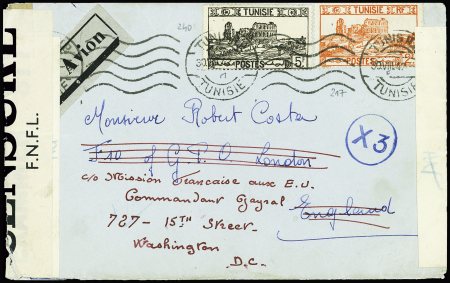 CENSURE
F.N.F.L.
Avion
240
TUNISIE
POSTES 5F
TUNISIE RF
POSTES
TUNIS
TUNISIE
TUNIS
TUNISIE
217
Monsieur Robert Costa
X3
F10 of G.P.O London
c/o Mission Francaise aux E.U.
Commandant
England
727 - 15TH Street
Washington
D.C.